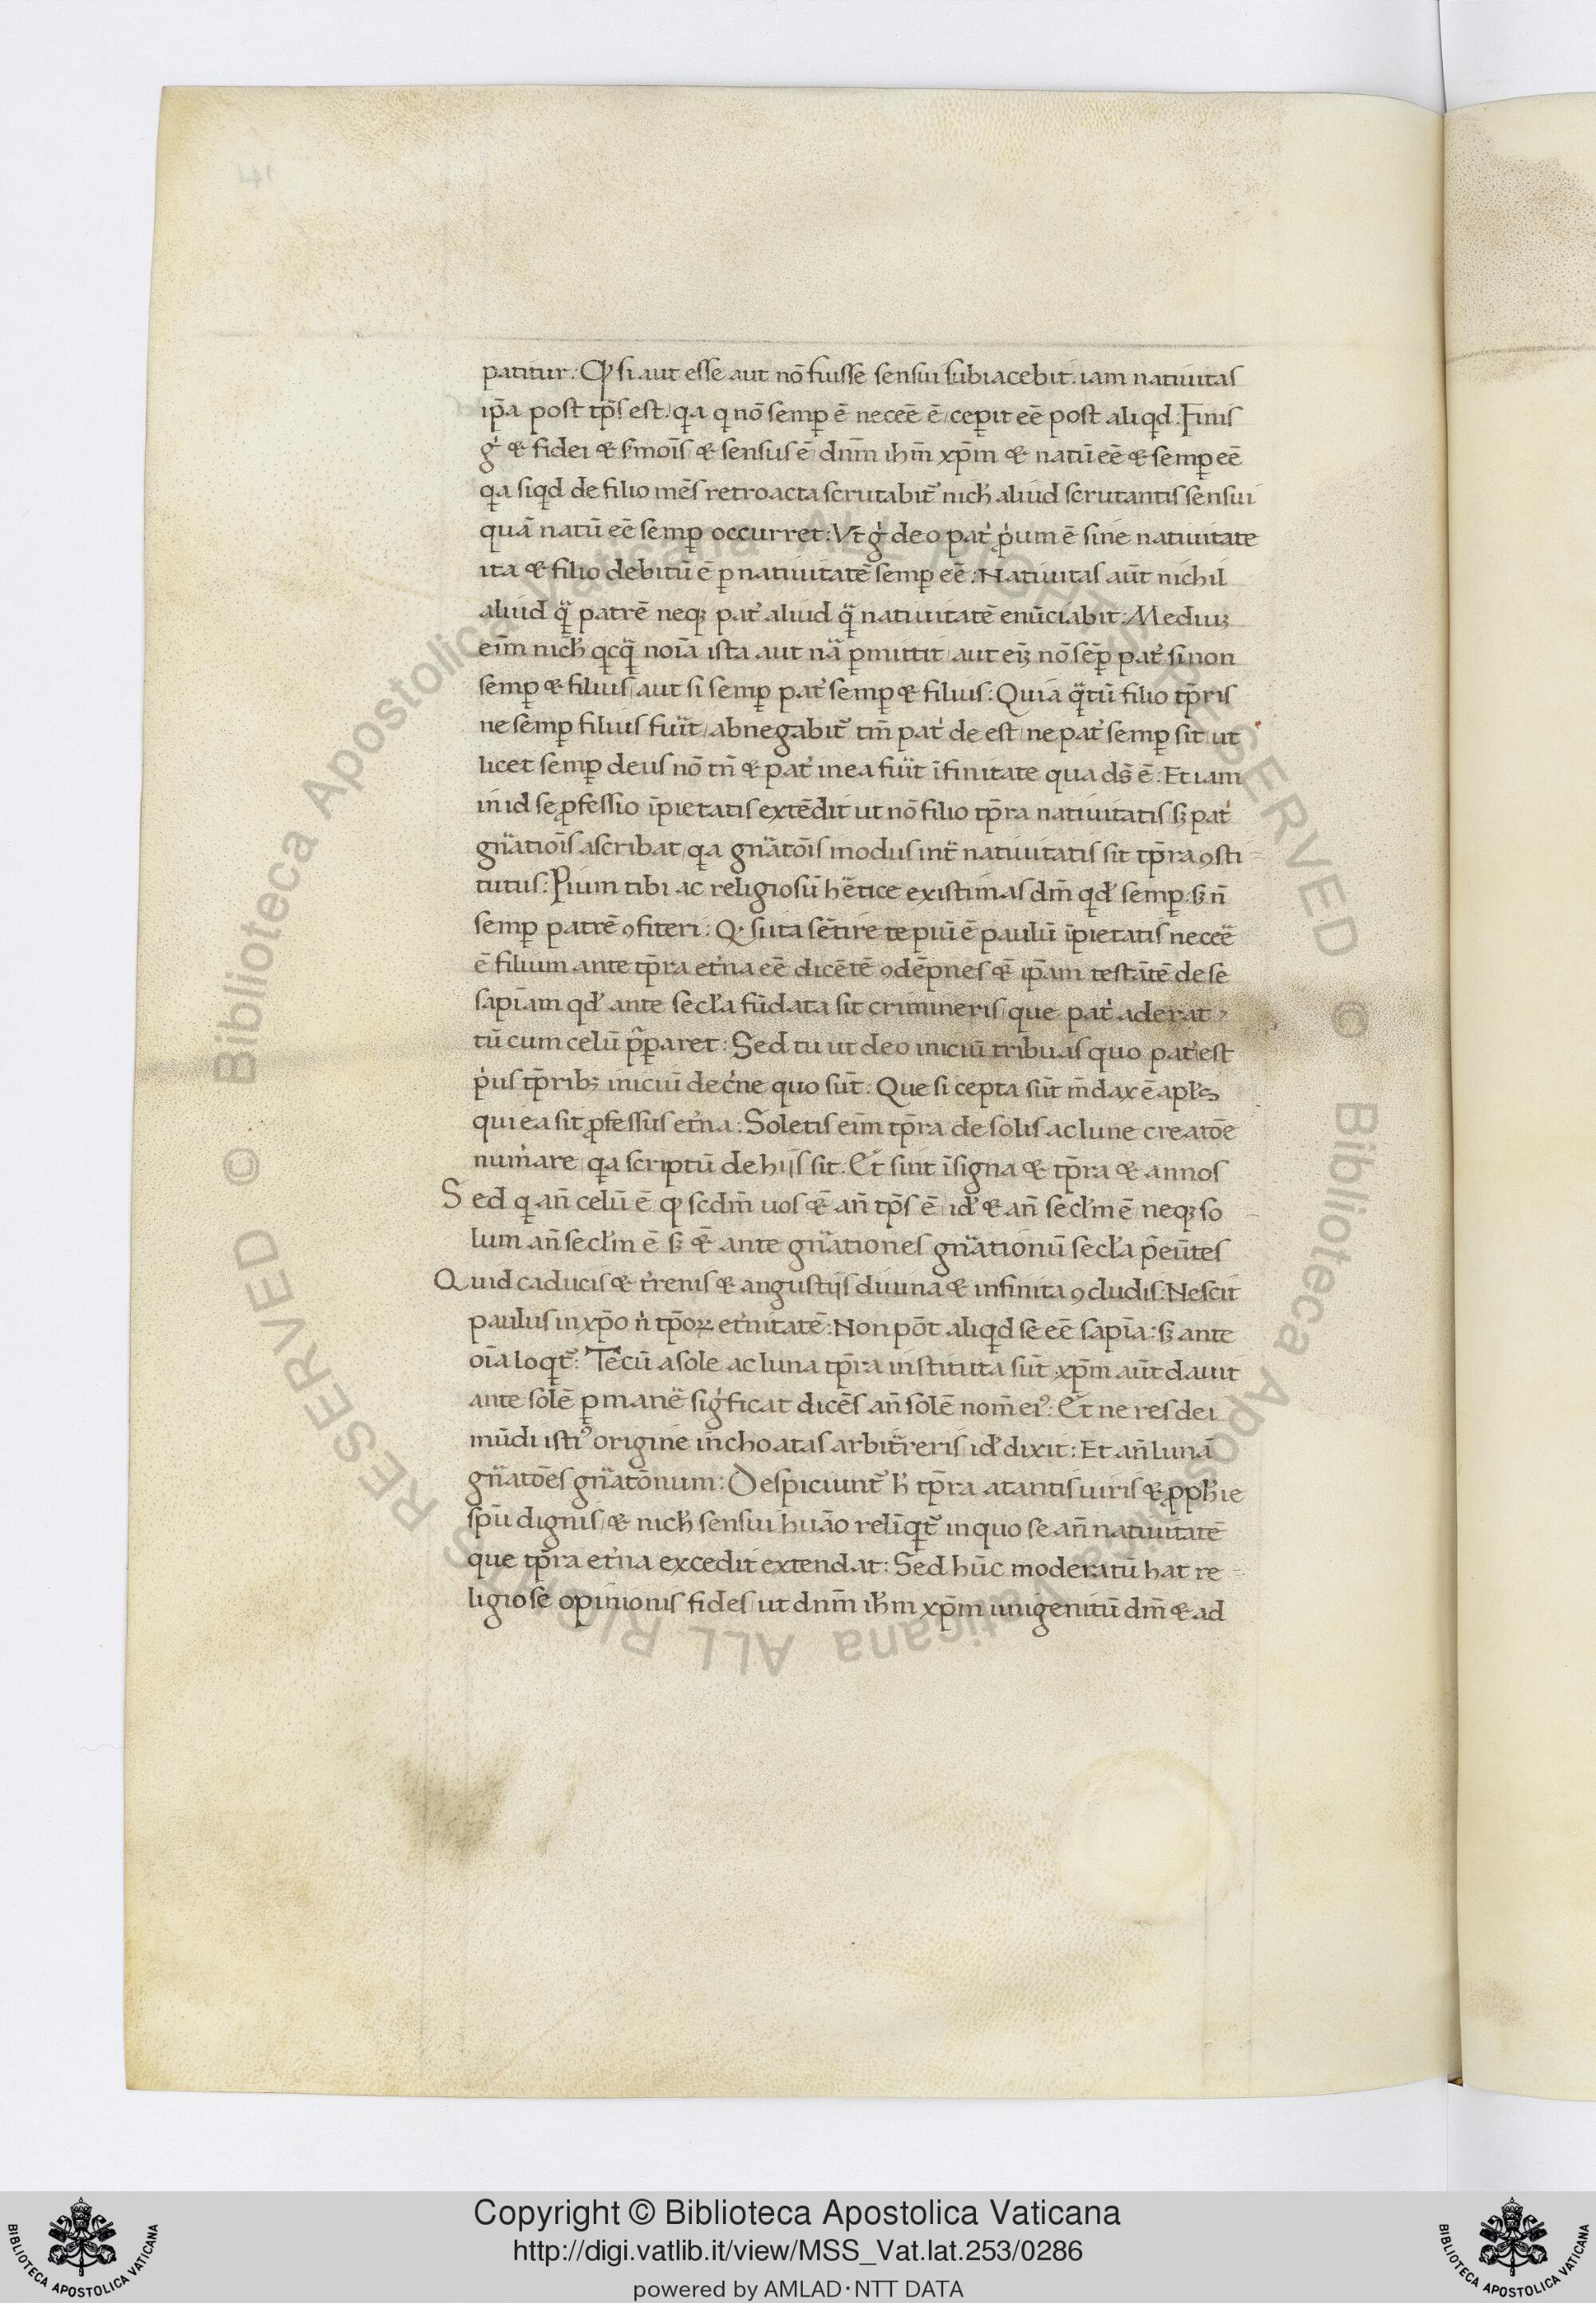 patitur: Qͥ si aut esse aut nō fuisse sensui subiacebit: iam natiuitas
ip̄a post tp̄s est: qa q nō semꝑ ē neceē ē / cepit eē post aliqd: Finis
g̊ & fidei & s̓mōis / & sensus ē / dnm̄ ihm̄ xp̄m & natū eē & semꝑ eē
qa siqd de filio mēs retroacta scrutabit᷑ nich̓ aliud scrutantis sensui
quā natū eē semꝑ occurret: Vt̄ g̊ deo pat̓ p̓um ē sine natiuitate
ita & filio debitū ē ꝑ natiuitatē semꝑ eē: Natiuitas aūt nichil
aliud q̈ patrē neqꝫ pat̓ aliud q̈ natiuitatē enūciabit: Mediuꝫ
eīm nich̓ qcq̈ noīa ista aut nā ꝑmittit / aut eiꝫ nō sēꝑ pat̓ si non
semꝑ & filius / aut si semꝑ pat̓ semꝑ & filius: Quia q̈tū filio tp̄ris
ne semꝑ filius fuït / abnegabit᷑ tm̄ pat̓ de est / ne pat̓ semꝑ sit ut
licet semꝑ deus nō tn̄ & pat̓ in ea fuït īfinitate qua ds̄ ē: Et iam
in id se ꝓfessio īpietatis extēdit ut nō filio tp̄ra natiuitatis sꝫ pat̓
gn̈atiōis ascribat / qa gn̈atōis modus int᷑ natiuitatis sit tp̄ra ꝯsti=
tutus: Pium tibi ac religiosū hētice existimas dm̄ qd̓ semꝑ: sꝫ n̄
semꝑ patrē ꝯfiteri: Qͥ si ita sētire te piū ē paulū īpietatis neceē
ē filium ante tp̄ra et̓na eē dicētē ꝯdēpnes & ip̄am testātē de se
sapīam qd̓ ante secl̓a fūdata sit crimineris / que pat̓ aderat
tū cum celū p̄ꝑaret: Sed tu ut deo iniciū tribuas quo pat̓ est
p̓us tp̄ribꝫ iniciū dec̓ne quo sūt: Que si cepta sūt m̄dax ē apl̓s
qui ea sit ꝓfessus et̓na: Soletis eīm tp̄ra de solis ac lune creatōe
num̓are / qa scriptū de hijs sit: Et sint īsigna & tp̄ra & annos
Sed q an̄ celū ē qͥ scdm̄ uos & an̄ tp̄s ē / id̓ & an̄ secl̓m ē / neqꝫ so
lum an̄ secl̓m ē sꝫ & ante gn̈ationes gn̈ationū secl̓a p̄eūtes
Quid caducis & t̓renis & angustijs diuina & infinita ꝯcludis: Nescit
paulus in xp̄o n̓ tp̄oꝝ et̓nitatē: Non pōt aliqd se eē sapīa: sꝫ ante
oīa loqt᷑: Tecū a sole ac luna tp̄ra instituta sūt xp̄m aūt dauit
ante solē ꝑmanē sig̓ficat dicēs an̄ solē nom̄ eiꝰ: Et ne res dei
mūdi istiꝰ origine inchoatas arbit̓reris / id̓ dixit: Et an̄ lunā
gn̈atōes gn̈atōnum: Despiciunt᷑ h̓ tp̄ra a tantis uiris & ꝓph̓ie
spū dignis / & nich̓ sensui huāo relīqt᷑ in quo se an̄ natiuitatē
que tp̄ra et̓na excedit extendat: Sed hūc moderatū hāt re=
ligiose opinionis fides / ut dnm̄ ih̄m xp̄m unigenitū dm̄ & ad
Copyright © Biblioteca Apostolica Vaticana
http://digi.vatlib.it/view/MSS_Vat.lat.253/0286
powered by AMLAD·NTT DATA
BIBLIOTECA APOSTOLICA VATICANA
BIBLIOTECA APOSTOLICA VATICANA
© Biblioteca Apostolica Vaticana ALL RIGHTS RESERVED © Biblioteca Apostolica Vaticana ALL RIGHTS RESERVED